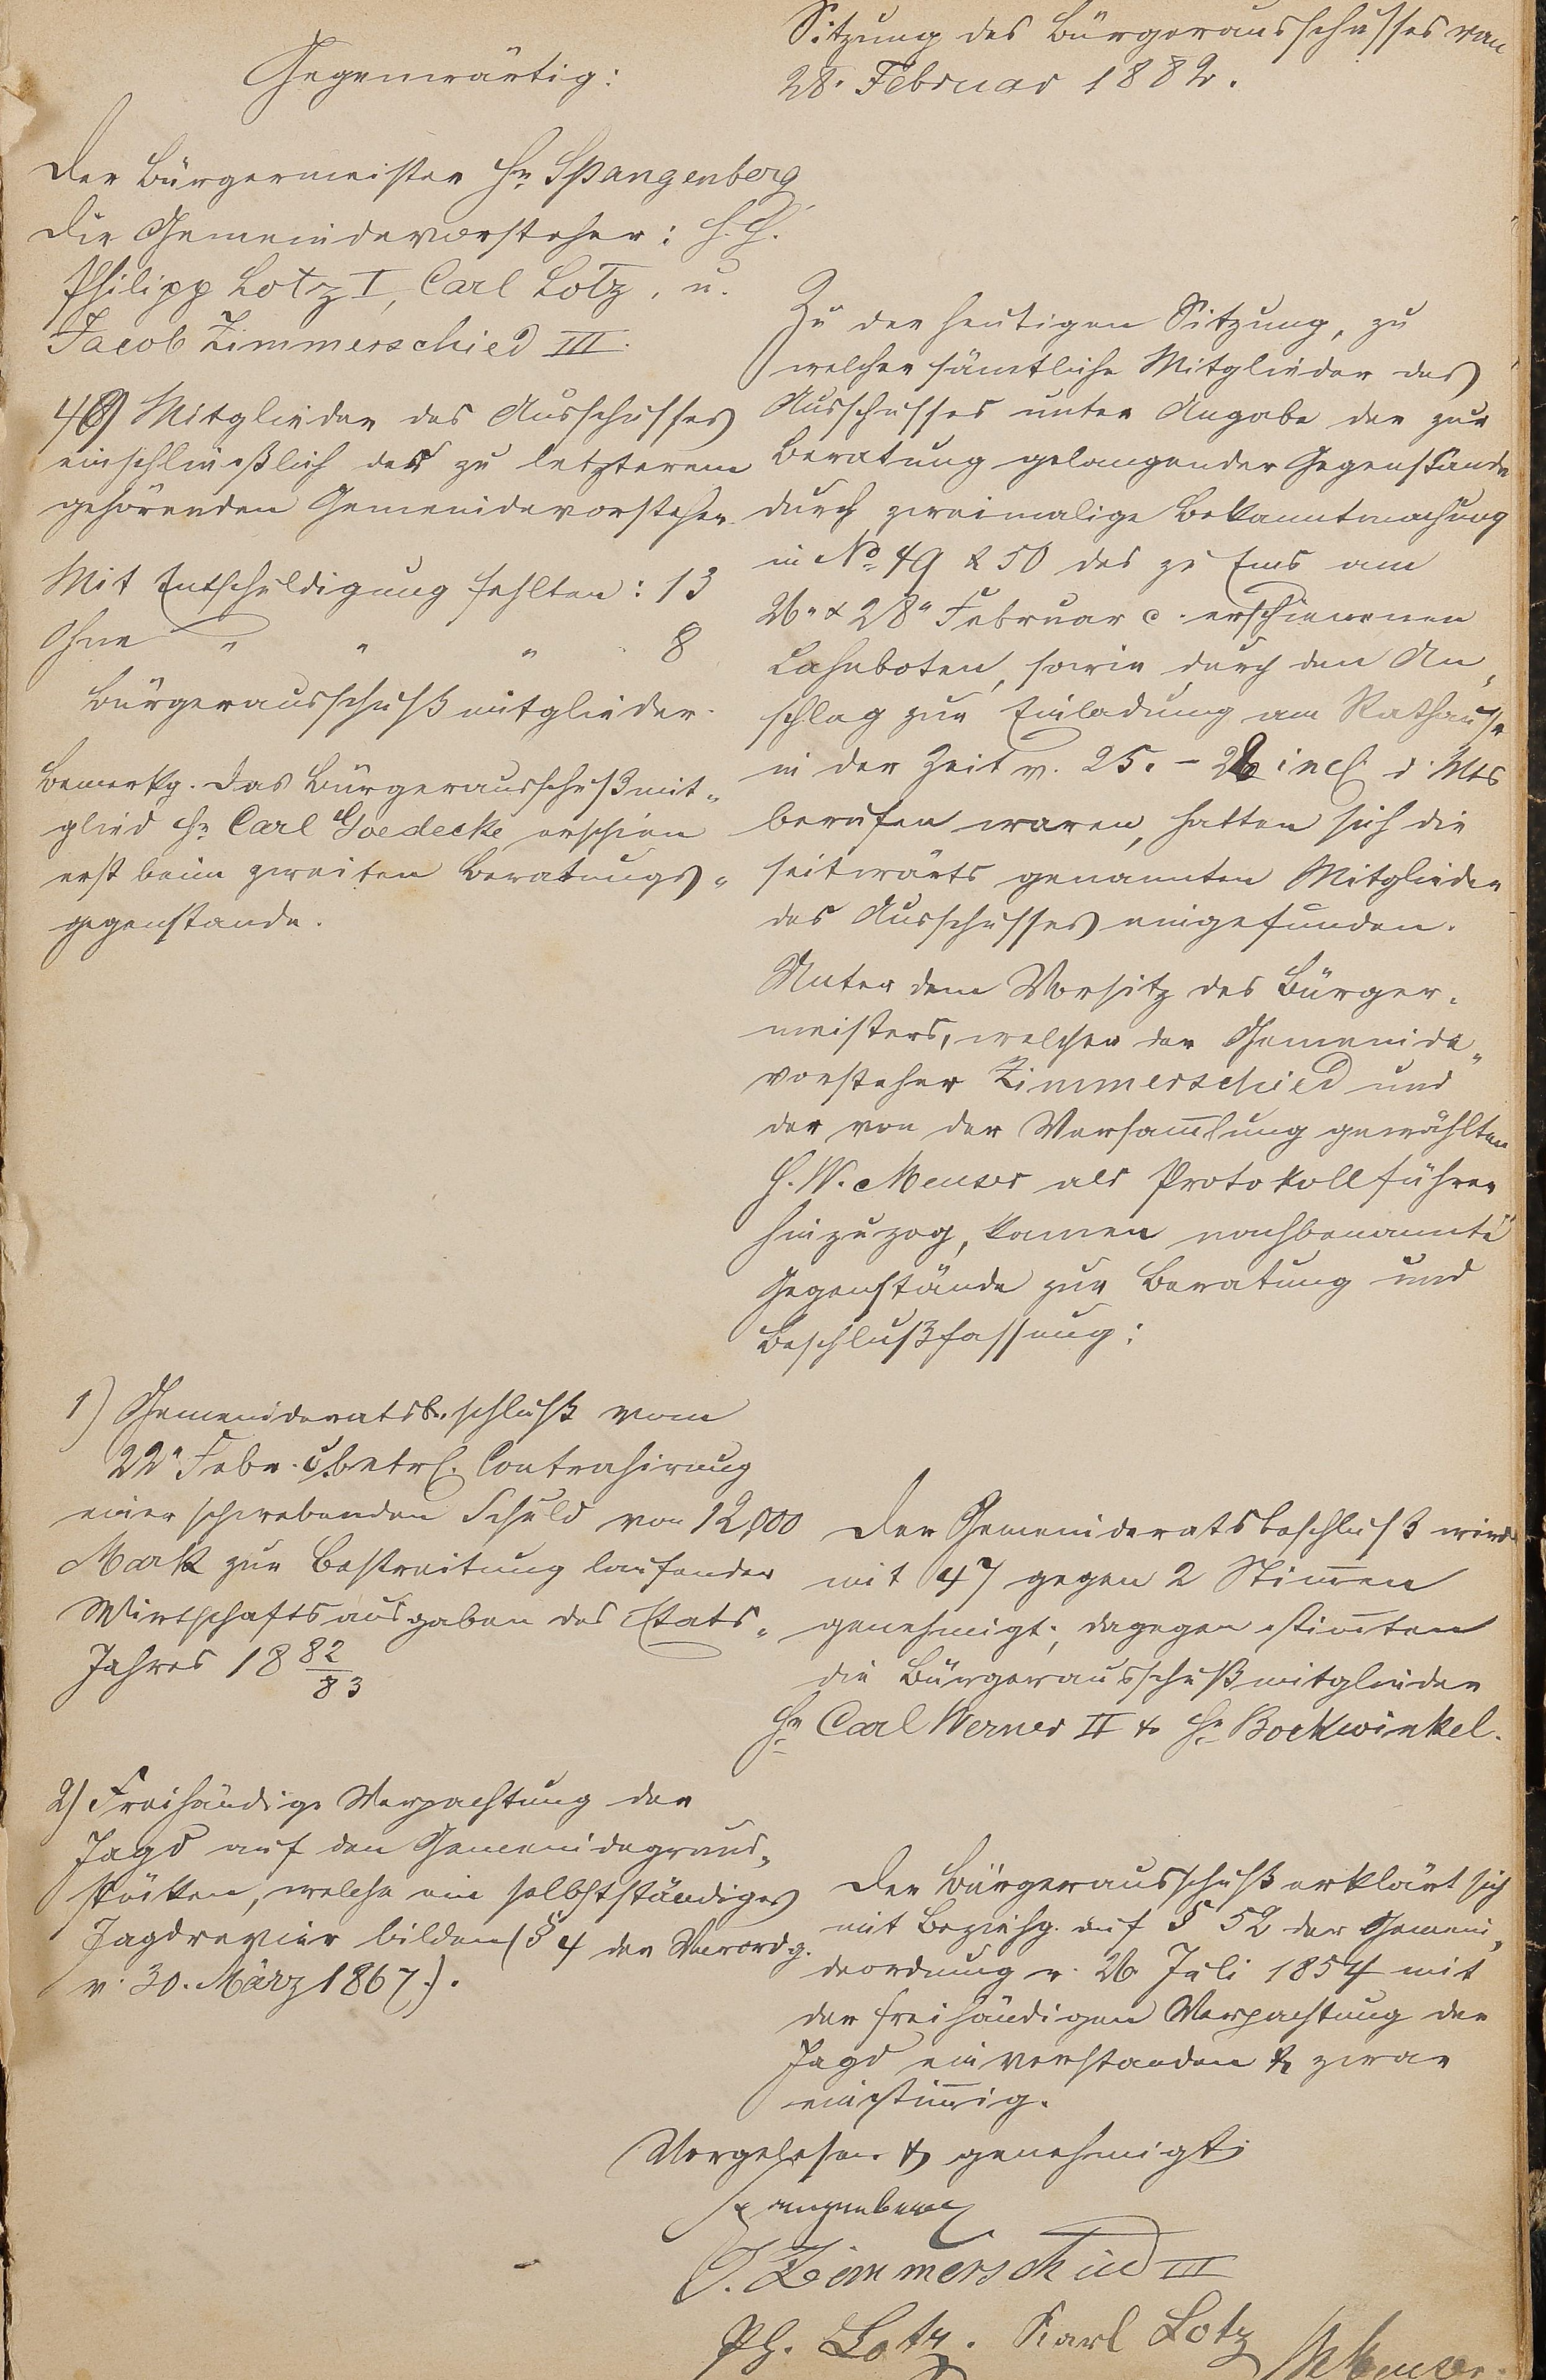 Sitzung des Bürgerausschusses vom
28. Februar 1882.
Gegenwärtig:
Der Bürgermeister Hr Spangenberg
Die Gemeindevorsteher: H.H.
Philipp Lotz I, Carl Lotz, u.
Jacob Zimmerschied III.
48 Mitglieder des Ausschusses
einschließlich der zu letzterem
gehörenden Gemeindevorsteher
Mit Entschuldigung fehlten: 13
Ohne " " " 8
Bürgerausschußmitglieder.
Bemerkg. Das Bürgerausschußmit-
glied Hr Carl Goedecke erschien
erst beim zweiten Beratungs-
gegenstande.
Zu der heutigen Sitzung, zu
welcher sämtliche Mitglieder des
Ausschusses unter Angabe der zur
Beratung gelangender Gegenstände
durch zweimalige Bekanntmachung
in No. 49 & 50 des zu Ems am
26. & 28. Februar c. erschienenen
Lahnboten, sowie durch den An-
schlag zur Einladung am Rathause
in der Zeit v. 25. - 28 incl. d. Mts
berufen waren, hatten sich die
seitwärts genannten Mitglieder
des Ausschusses eingefunden.
Unter dem Vorsitz des Bürger-
meisters, welcher der Gemeinde-
vorsteher Zimmerschied und
der von der Versam̅lung gewählten
H. W. Menser als Protokollführer
hinzuzog, kamen nachbenannte
Gegenstände zur Beratung und
Beschlußfassung:
1) Gemeinderatsbeschluß vom
22. Febr. c. betrf. Contrahirung
einer schwebenden Schuld von 12,000
Mark zur Bestreitung laufender
Wirthschaftsausgaben des Etats-
Jahres 1882/83
Der Gemeinderatsbeschluß wird
mit 47 gegen 2 Stim̅en
genehmigt; dagegen stim̅ten
die Bürgerausschußmitglieder
Hr Carl Werner II & Hr Bockwinkel.
2) Freihändige Verpachtung der
Jagd auf den Gemeindegrund-
stücken, welche ein selbstständiges
Jagdrevier bilden (§ 4 der Verordg.
v. 30. März 1867.).
Der Bürgerausschuß erklärt sich
mit Beziehg. auf § 52 der Gemein-
deordnung v. 26 Juli 1854 mit
der freihändigen Verpachtung der
Jagd einverstanden & zwar
einstim̅ig.
Vorgelesen & genehmigt:
Spangenberg
J. Zimmerschied III
Ph. Lotz. Karl Lotz
W Menser.